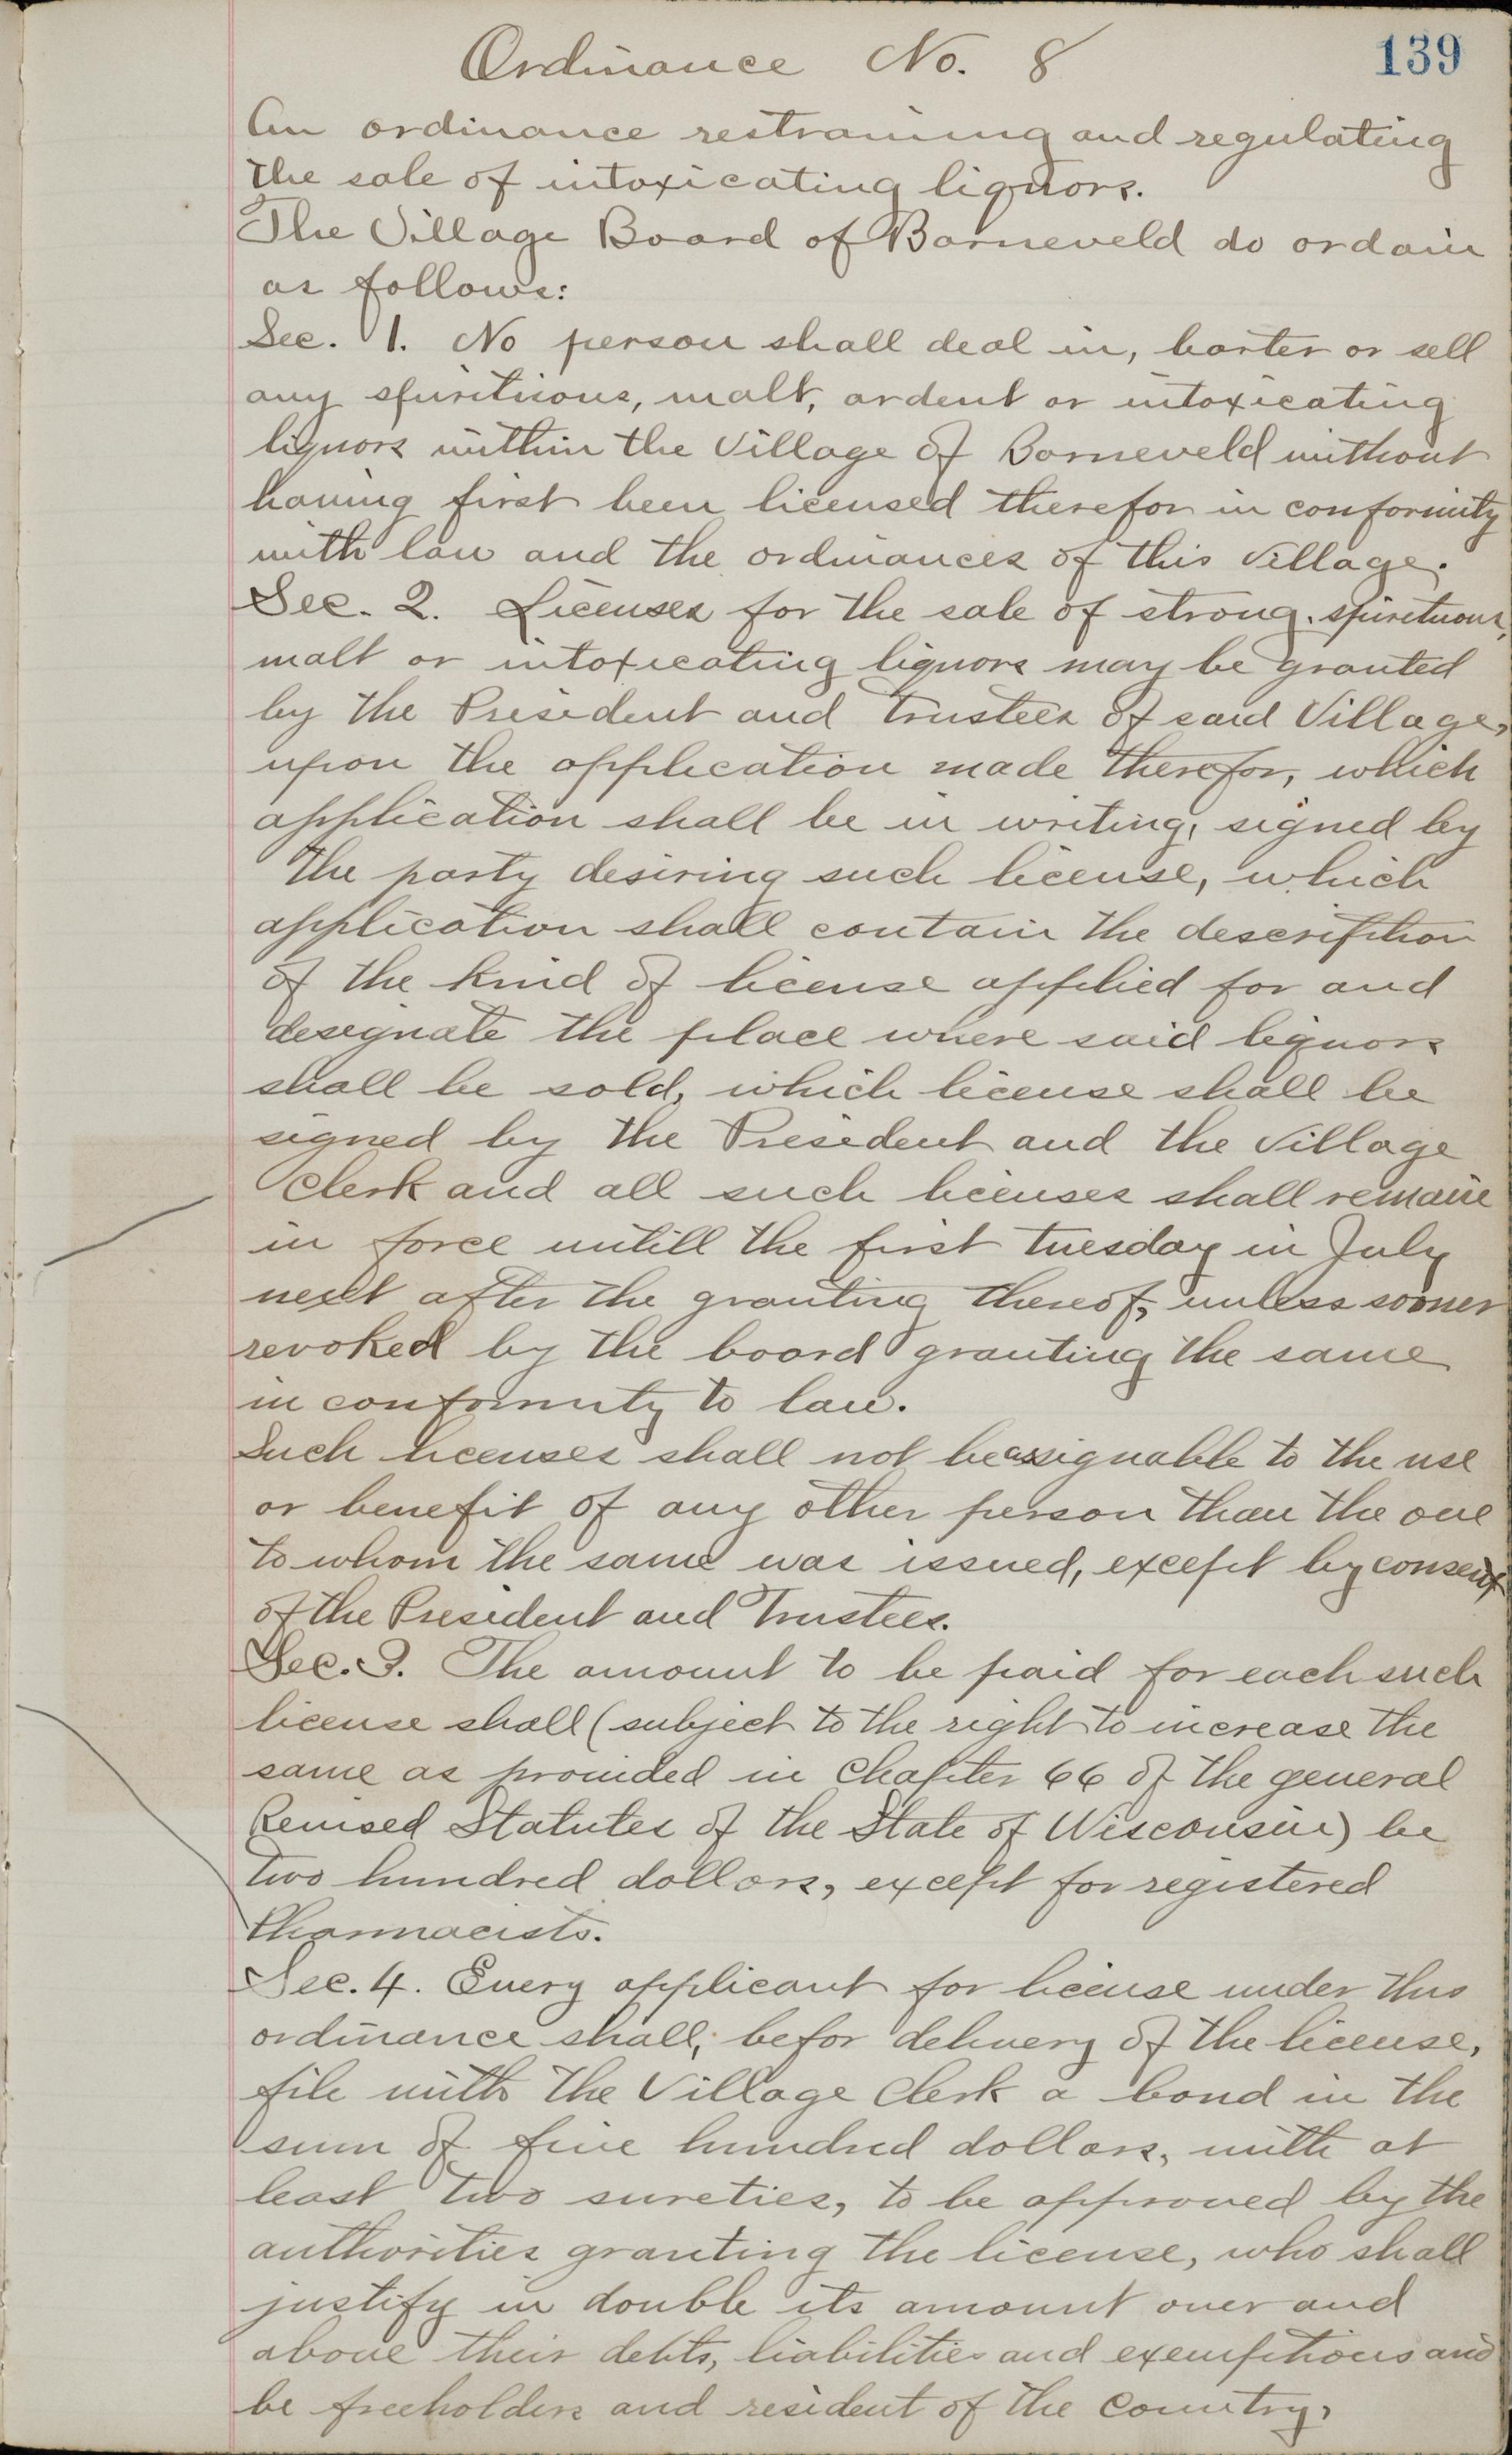 Ordinance No. 8
139
An ordinance restraining and regulating
the sale of intoxicating liquors.
The Village Board of Barneveld do ordain
as follows:
Sec. 1. No person shall deal in, barter or sell
any spirituous, malt, ardent or intoxicating
liquors within the Village of Barneveld without
having first been licensed therefor in conformity
with law and the ordinances of this Village.
Sec. 2. Licenses for the sale of strong, spirituous,
malt or intoxicating liquors may be granted
by the President and Trustees of said Village,
upon the application made therefor, which
application shall be in writing, signed by
the party desiring such license, which
application shall contain the description
of the kind of license applied for and
designate the place where said liquors
shall be sold, which license shall be
signed by the President and the Village
Clerk and all such licenses shall remain
in force untill the first Tuesday in July
next after the granting thereof, unless sooner
revoked by the board granting the same
in conformity to law.
Such licenses shall not be assignable to the use
or benefit of any other person than the one
to whom the same was issued, except by consent
of the President and Trustees.
Sec. 3. The amount to be paid for each such
license shall (subject to the right to increase the
same as provided in Chapter 66 of the general
Revised Statutes of the State of Wisconsin) be
two hundred dollars, except for registered
Pharmacists.
Sec. 4. Every applicant for license under this
ordinance shall, befor delivery of the license,
file with the Village Clerk a bond in the
sum of five hundred dollars, with at
least two sureties, to be approved by the
authorities granting the license, who shall
justify in double its amount over and
above their debts, liabilities and exemptions and
be freeholders and resident of the Country,